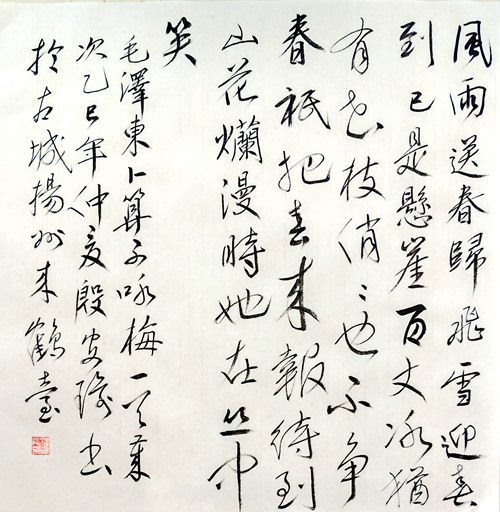 風雨送春歸飛雪迎春
到已是懸崖百丈冰猶
有花枝俏〻也不争
春祇把春来報待到
山花爛漫時她在丛中
笑
毛澤東卜算子咏梅一歲
次乙巳年仲夏殷书
於古城揚州来鶴臺